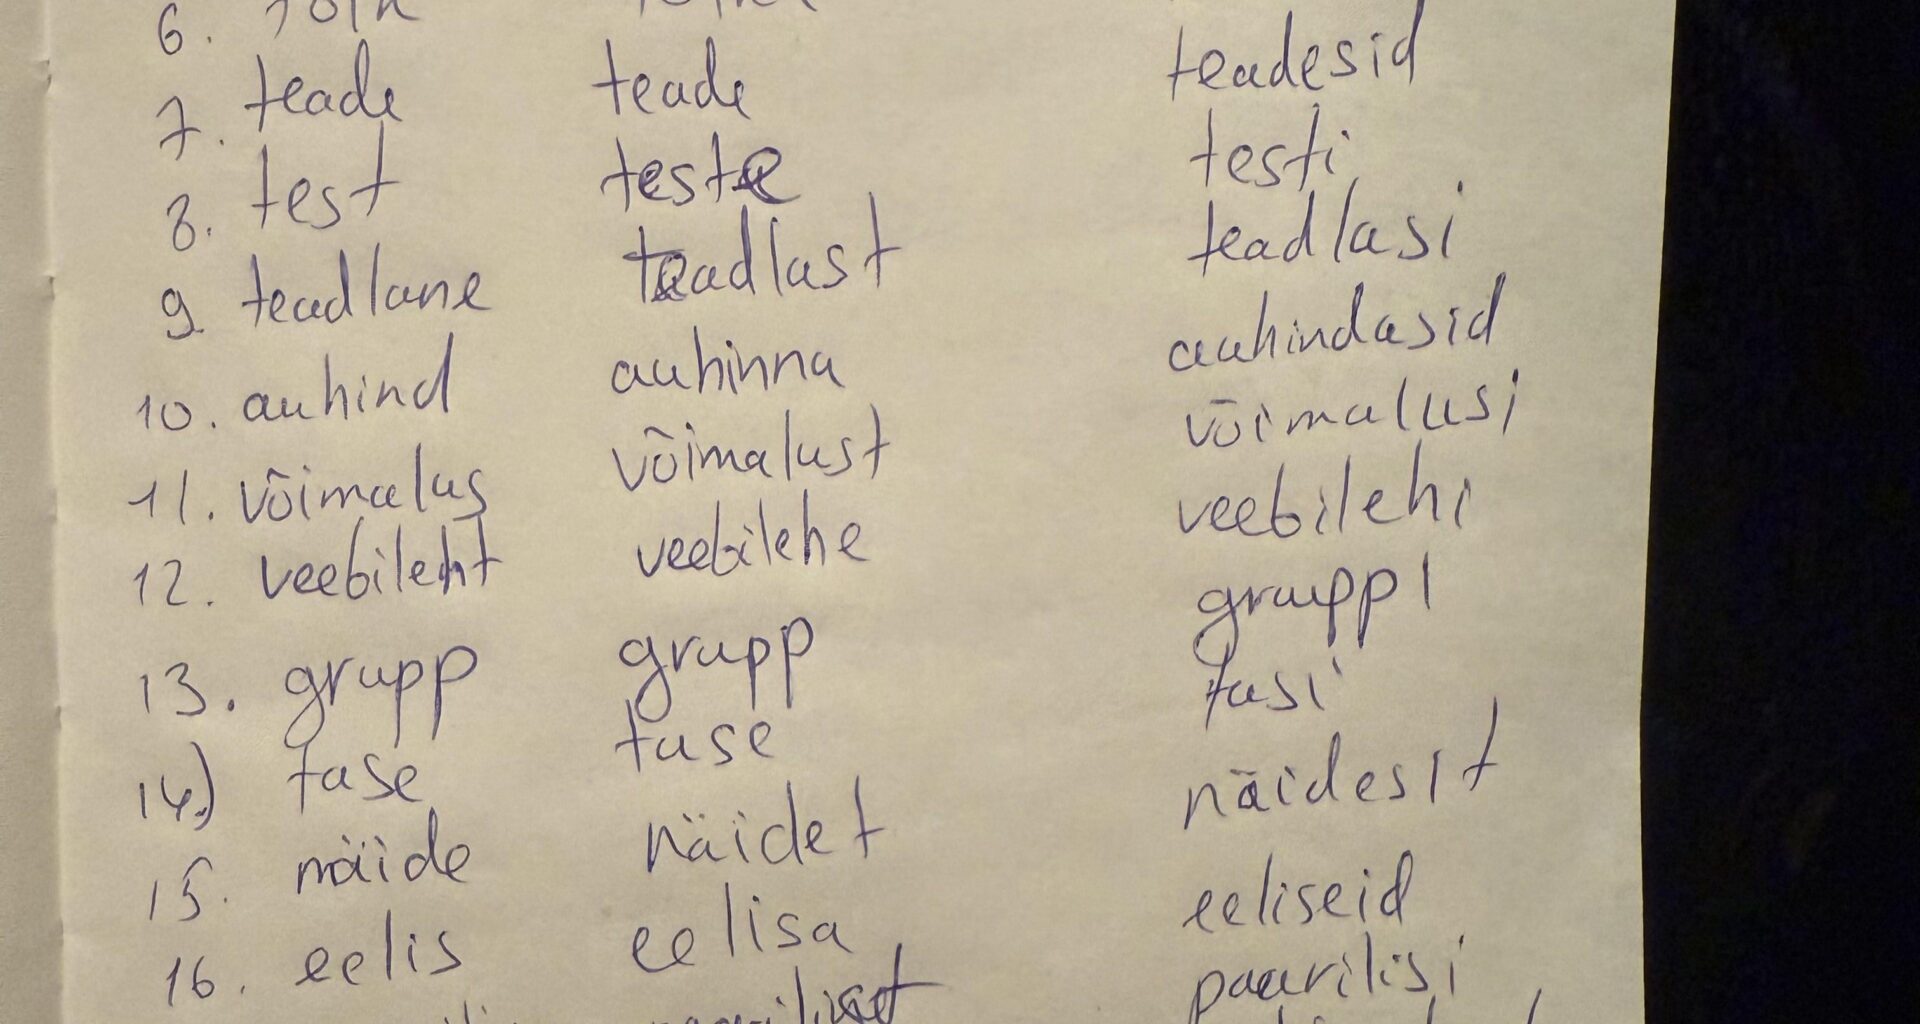 6.
7. teade teade teadesid
8. test teste testi
9. teadlane teadlast teadlasi
10. auhind auhinna auhindasid
11. võimalus võimalust võimalusi
12. veebileht veebilehe veebilehi
13. grupp grupp gruppi
14.) tase tase tasi
15. näide näidet näidesit
16. eelis eelisa eeliseid
paarilisi